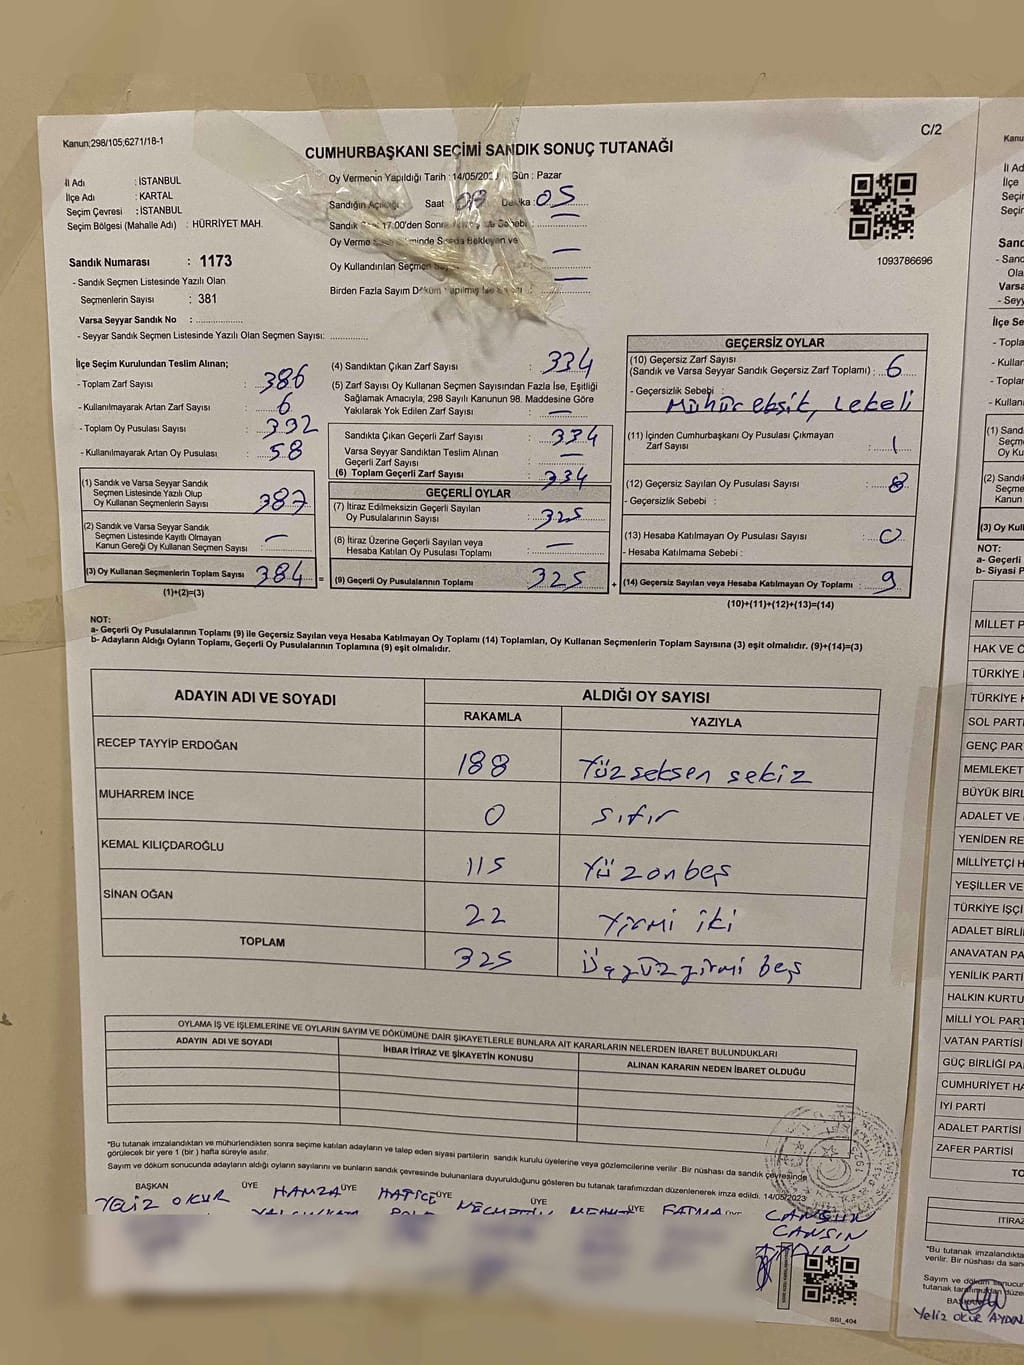 Kanun;298/105;6271/18-1
C/2
CUMHURBAŞKANI SEÇİMİ SANDIK SONUÇ TUTANAĞI
İl Adı : İSTANBUL
İlçe Adı : KARTAL
Seçim Çevresi : İSTANBUL
Seçim Bölgesi (Mahalle Adı) : HÜRRİYET MAH.
Oy Vermenin Yapıldığı Tarih : 14/05/2023 Gün : Pazar
Sandığın Açılışı Saat 08 Dakika : 05
17.00'den
Oy Verme
Oy Kullandırılan Seçmen
Birden Fazla Sayım
1093786696
Sandık Numarası : 1173
- Sandık Seçmen Listesinde Yazılı Olan
Seçmenlerin Sayısı : 381
Varsa Seyyar Sandık No :
- Seyyar Sandık Seçmen Listesinde Yazılı Olan Seçmen Sayısı:
İlçe Seçim Kurulundan Teslim Alınan;
- Toplam Zarf Sayısı : 386
- Kullanılmayarak Artan Zarf Sayısı : 6
- Toplam Oy Pusulası Sayısı : 392
- Kullanılmayarak Artan Oy Pusulası : 58
(1) Sandık ve Varsa Seyyar Sandık
Seçmen Listesinde Yazılı Olup
Oy Kullanan Seçmenlerin Sayısı
(2) Sandık ve Varsa Seyyar Sandık
Seçmen Listesinde Kayıtlı Olmayan
Kanun Gereği Oy Kullanan Seçmen Sayısı —
(3) Oy Kullanan Seçmenlerin Toplam Sayısı
(1)+(2)=(3)
(4) Sandıktan Çıkan Zarf Sayısı : 334
(5) Zarf Sayısı Oy Kullanan Seçmen Sayısından Fazla İse, Eşitliği
Sağlamak Amacıyla, 298 Sayılı Kanunun 98. Maddesine Göre
Yakılarak Yok Edilen Zarf Sayısı : —
Sandıkta Çıkan Geçerli Zarf Sayısı : 334
Varsa Seyyar Sandıktan Teslim Alınan
Geçerli Zarf Sayısı : —
(6) Toplam Geçerli Zarf Sayısı : 334
GEÇERLİ OYLAR
(7) İtiraz Edilmeksizin Geçerli Sayılan
Oy Pusulalarının Sayısı : 325
(8) İtiraz Üzerine Geçerli Sayılan veya
Hesaba Katılan Oy Pusulası Toplamı : —
= (9) Geçerli Oy Pusulalarının Toplamı : 325 +
GEÇERSİZ OYLAR
(10) Geçersiz Zarf Sayısı
(Sandık ve Varsa Seyyar Sandık Geçersiz Zarf Toplamı) : 6
- Geçersizlik Sebebi :
Mühür eksik, Lekeli
(11) İçinden Cumhurbaşkanı Oy Pusulası Çıkmayan
Zarf Sayısı : 1
(12) Geçersiz Sayılan Oy Pusulası Sayısı :
- Geçersizlik Sebebi :
(13) Hesaba Katılmayan Oy Pusulası Sayısı : 0
- Hesaba Katılmama Sebebi :
(14) Geçersiz Sayılan veya Hesaba Katılmayan Oy Toplamı : 9
(10)+(11)+(12)+(13)=(14)
NOT:
a- Geçerli Oy Pusulalarının Toplamı (9) ile Geçersiz Sayılan veya Hesaba Katılmayan Oy Toplamı (14) Toplamları, Oy Kullanan Seçmenlerin Toplam Sayısına (3) eşit olmalıdır. (9)+(14)=(3)
b- Adayların Aldığı Oyların Toplamı, Geçerli Oy Pusulalarının Toplamına (9) eşit olmalıdır.
ADAYIN ADI VE SOYADI
ALDIĞI OY SAYISI
RAKAMLA YAZIYLA
RECEP TAYYİP ERDOĞAN 188 Yüzseksen sekiz
MUHARREM İNCE 0 sıfır
KEMAL KILIÇDAROĞLU 115 Yüzonbeş
SİNAN OĞAN 22 Yirmi iki
TOPLAM 325 Üçyüzyirmi beş
OYLAMA İŞ VE İŞLEMLERİNE VE OYLARIN SAYIM VE DÖKÜMÜNE DAİR ŞİKAYETLERLE BUNLARA AİT KARARLARIN NELERDEN İBARET BULUNDUKLARI
ADAYIN ADI VE SOYADI İHBAR İTİRAZ VE ŞİKAYETİN KONUSU ALINAN KARARIN NEDEN İBARET OLDUĞU
*Bu tutanak imzalandıktan ve mühürlendikten sonra seçime katılan adayların ve talep eden siyasi partilerin sandık kurulu üyelerine veya gözlemcilerine verilir .Bir nüshası da sandık çevresinde
görülecek bir yere 1 (bir ) hafta süreyle asılır.
Sayım ve döküm sonucunda adayların aldığı oyların sayılarını ve bunların sandık çevresinde bulunanlara duyurulduğunu gösteren bu tutanak tarafımızdan düzenlenerek imza edildi. 14/05/2023
BAŞKAN ÜYE ÜYE ÜYE ÜYE ÜYE ÜYE
YELİZ OKUR HAMZA HATİCE FATMA
CANSIN
SSI_404
Kanu
İl Ad
İlçe
Seçi
Seçir
Sand
- Sand
Ola
Varsa
- Seyy
İlçe Se
- Topla
- Kullan
- Toplar
- Kullan
(1) Sand
Seçm
Oy Ku
(2) Sandı
Seçme
Kanun
(3) Oy Kul
NOT:
a- Geçerli
b- Siyasi P
MİLLET P
HAK VE Ö
TÜRKİYE
TÜRKİYE K
SOL PARTİ
GENÇ PAR
MEMLEKET
BÜYÜK BİRL
ADALET VE
YENİDEN RE
MİLLİYETÇİ H
YEŞİLLER VE
TÜRKİYE İŞÇİ
ADALET BİRLİ
ANAVATAN PA
YENİLİK PARTİ
HALKIN KURTU
MİLLİ YOL PART
VATAN PARTİSİ
GÜÇ BİRLİĞİ PA
CUMHURİYET HA
İYİ PARTİ
ADALET PARTİSİ
ZAFER PARTİSİ
TO
İTİRAZ
*Bu tutanak imzalandıkta
verilir. Bir nüshası da san
Sayım ve döküm sonucun
tutanak tarafımızdan düze
Yeliz OKUR AYDIN